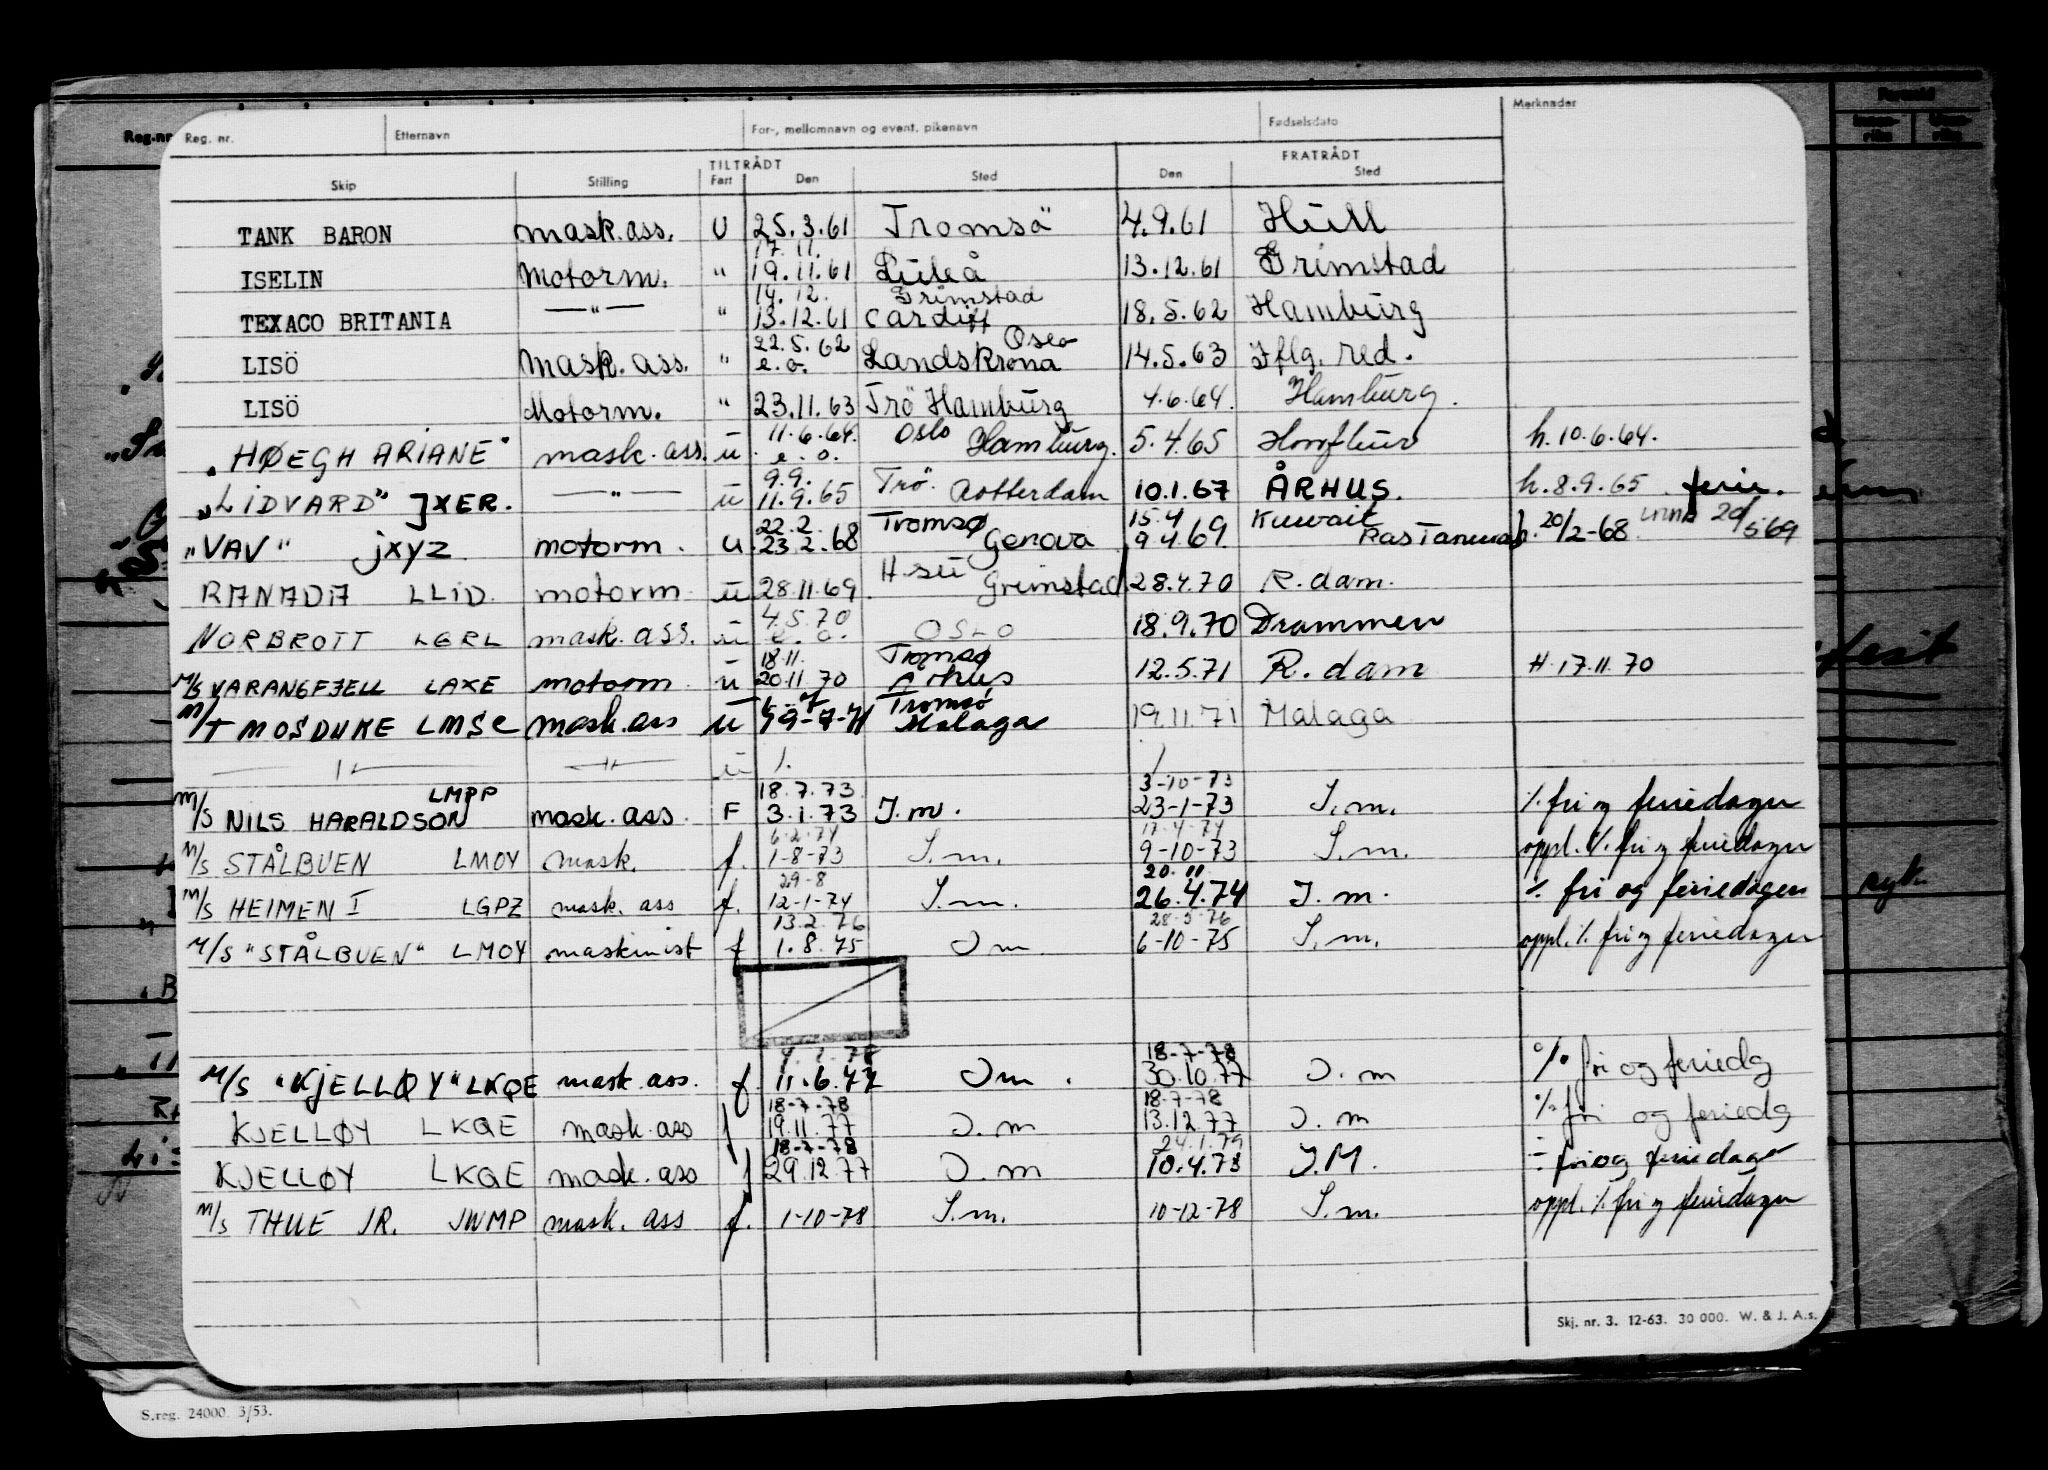 Reg. nr. Etternavn For-, mellomnavn og event. pikenavn Fødselsdato Merknader
TILTRÅDT FRATRÅDT
Skip Stilling Fart Den Sted Den Sted
TANK BARON mask.ass. U 25.3.61 Tromsö 4.9.61 Hull
17.11.
ISELIN Motorm. " 19.11.61 Luleå 13.12.61 Grimstad
14.12. Grimstad
TEXACO BRITANIA —"— " 13.12.61 Cardiff 18.5.62 Hamburg
22.5.62 Oslo
LISÖ Mask.ass. " e.o. Landskrona 14.5.63 Iflg. red.
LISÖ Motorm. " 23.11.63 Trö Hamburg 4.6.64. Hamburg.
11.6.64. Oslo
"HØEGH ARIANE" mask.ass. u e.o. Hamburg. 5.4.65 Honfleur h.10.6.64.
9.9. Trö.
"LIDVARD" JXER. —"— u 11.9.65 Rotterdam 10.1.67 ÅRHUS. h.8.9.65 ferie.
22.2. Tromsø 15.4 Kuwait
"VAV" jxyz motorm. u. 23.2.68 Genova 9.4.69. RasTanura h. 20/2-68. 20/5 69
H-su
RANADA LLID. motorm. u 28.11.69. Grimstad 28.4.70 R.dam.
4.5.70
NORBROTT LGRL mask.ass. u e.o. OSLO 18.9.70 Drammen
18.11. Tromsø
M/S VARANGFJELL LAXE motorm u 20.11.70 Århus 12.5.71 R.dam H.17.11.70
Tromsö
M/T MOSDUKE LMSC mask.ass u 9-7-71 Malaga 19.11.71 Malaga
—"— —"— u /. /
LMPP 18.7.73. 3-10-73
M/S NILS HARALDSON mask.ass. F 3.1.73 I.m. 23-1-73 I.m. ./. fri og feriedager
6.2.74 17.4.74
M/S STÅLBUEN LMOY mask. f. 1-8-73 I.m. 9-10-73 I.m. oppl. ./. fri og feriedager
29-8 20.11
M/S HEIMEN I LGPZ mask.ass f. 12-1-74 I.m. 26.4.74 I.m. ./. fri og feriedager
13.2.76 28-5-76
M/S "STÅLBUEN" LMOY maskinist f 1.8.75 I m 6-10-75 I.m. oppl. ./. fri og feriedager
18-7-78
M/S "KJELLØY" LKQE mask.ass. f. 11.6.77 I m. 30.10.77 I.m ./. fri og feriedg
18-7-78 18.7-78
KJELLØY LKQE mask.ass f 19.11.77 I.m 13.12.77 I.m ./. fri og feriedg
18-7-78 24.1.79
KJELLØY LKQE mask.ass f 29.12.77 I.m 10.4.78 I.M. ÷ fri og feriedager
M/S THUE JR. JWMP mask.ass f. 1-10-78 I.m. 10-12-78 I.m. oppl. ./. fri og feriedager
Skj. nr. 3. 12-63. 30 000. W. & J. A.s.
S.reg. 24000. 3/53.